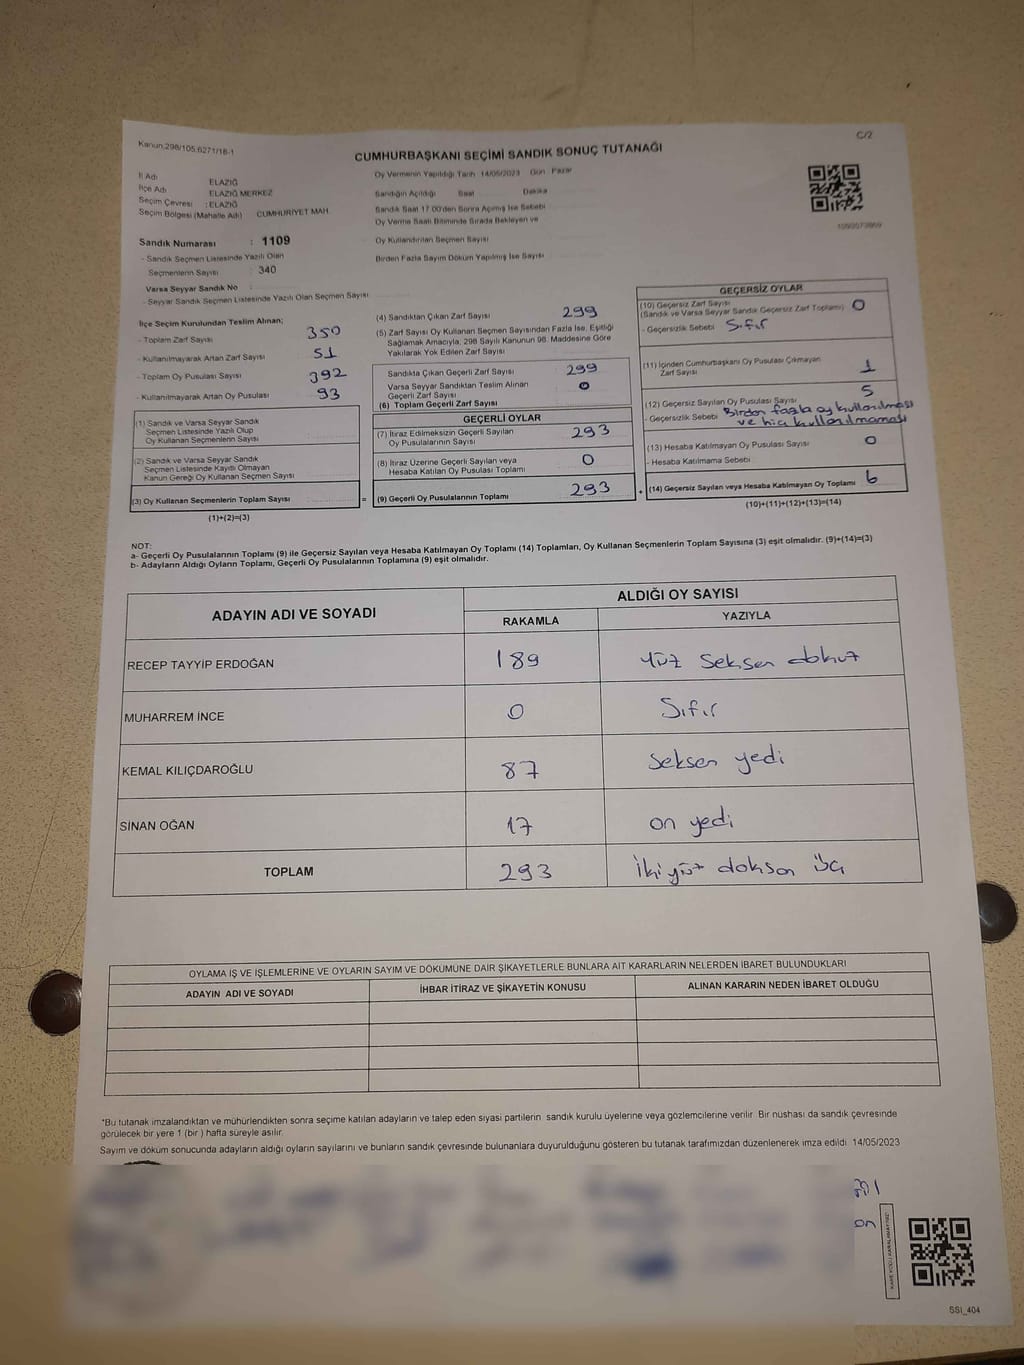 Kanun:298/105,6271/18-1
C/2
CUMHURBAŞKANI SEÇİMİ SANDIK SONUÇ TUTANAĞI
İl Adı ELAZIĞ
İlçe Adı ELAZIĞ MERKEZ
Seçim Çevresi : ELAZIĞ
Seçim Bölgesi (Mahalle Adı) CUMHURİYET MAH.
Oy Vermenin Yapıldığı Tarih 14/05/2023 Gün Pazar
Sandığın Açıldığı Saat Dakika
Sandık Saat 17.00'den Sonra Açılmış İse Sebebi
Oy Verme Saati Bitiminde Sırada Bekleyen ve
Oy Kullandırılan Seçmen Sayısı
Birden Fazla Sayım Döküm Yapılmış İse Sayısı
Sandık Numarası : 1109
- Sandık Seçmen Listesinde Yazılı Olan
Seçmenlerin Sayısı : 340
Varsa Seyyar Sandık No
- Seyyar Sandık Seçmen Listesinde Yazılı Olan Seçmen Sayısı
İlçe Seçim Kurulundan Teslim Alınan;
- Toplam Zarf Sayısı 350
- Kullanılmayarak Artan Zarf Sayısı 51
- Toplam Oy Pusulası Sayısı 392
- Kullanılmayarak Artan Oy Pusulası 93
(1) Sandık ve Varsa Seyyar Sandık
Seçmen Listesinde Yazılı Olup
Oy Kullanan Seçmenlerin Sayısı
(2) Sandık ve Varsa Seyyar Sandık
Seçmen Listesinde Kayıtlı Olmayan
Kanun Gereği Oy Kullanan Seçmen Sayısı
(3) Oy Kullanan Seçmenlerin Toplam Sayısı
(1)+(2)=(3)
(4) Sandıktan Çıkan Zarf Sayısı 299
(5) Zarf Sayısı Oy Kullanan Seçmen Sayısından Fazla İse, Eşitliği
Sağlamak Amacıyla, 298 Sayılı Kanunun 98. Maddesine Göre
Yakılarak Yok Edilen Zarf Sayısı
Sandıkta Çıkan Geçerli Zarf Sayısı 299
Varsa Seyyar Sandıktan Teslim Alınan
Geçerli Zarf Sayısı 0
(6) Toplam Geçerli Zarf Sayısı
GEÇERLİ OYLAR
(7) İtiraz Edilmeksizin Geçerli Sayılan
Oy Pusulalarının Sayısı 293
(8) İtiraz Üzerine Geçerli Sayılan veya
Hesaba Katılan Oy Pusulası Toplamı 0
= (9) Geçerli Oy Pusulalarının Toplamı 293
GEÇERSİZ OYLAR
(10) Geçersiz Zarf Sayısı
(Sandık ve Varsa Seyyar Sandık Geçersiz Zarf Toplamı) 0
- Geçersizlik Sebebi Sıfır
(11) İçinden Cumhurbaşkanı Oy Pusulası Çıkmayan
Zarf Sayısı 1
(12) Geçersiz Sayılan Oy Pusulası Sayısı 5
- Geçersizlik Sebebi Birden fazla oy kullanılması
ve hiç kullanılmaması
(13) Hesaba Katılmayan Oy Pusulası Sayısı 0
- Hesaba Katılmama Sebebi
+ (14) Geçersiz Sayılan veya Hesaba Katılmayan Oy Toplamı 6
(10)+(11)+(12)+(13)=(14)
NOT:
a- Geçerli Oy Pusulalarının Toplamı (9) ile Geçersiz Sayılan veya Hesaba Katılmayan Oy Toplamı (14) Toplamları, Oy Kullanan Seçmenlerin Toplam Sayısına (3) eşit olmalıdır. (9)+(14)=(3)
b- Adayların Aldığı Oyların Toplamı, Geçerli Oy Pusulalarının Toplamına (9) eşit olmalıdır.
ADAYIN ADI VE SOYADI ALDIĞI OY SAYISI
RAKAMLA YAZIYLA
RECEP TAYYİP ERDOĞAN 189 Yüz seksen dokuz
MUHARREM İNCE 0 Sıfır
KEMAL KILIÇDAROĞLU 87 seksen yedi
SİNAN OĞAN 17 on yedi
TOPLAM 293 İki yüz doksan üç
OYLAMA İŞ VE İŞLEMLERİNE VE OYLARIN SAYIM VE DÖKÜMÜNE DAİR ŞİKAYETLERLE BUNLARA AİT KARARLARIN NELERDEN İBARET BULUNDUKLARI
ADAYIN ADI VE SOYADI İHBAR İTİRAZ VE ŞİKAYETİN KONUSU ALINAN KARARIN NEDEN İBARET OLDUĞU
*Bu tutanak imzalandıktan ve mühürlendikten sonra seçime katılan adayların ve talep eden siyasi partilerin sandık kurulu üyelerine veya gözlemcilerine verilir. Bir nüshası da sandık çevresinde
görülecek bir yere 1 (bir) hafta süreyle asılır.
Sayım ve döküm sonucunda adayların aldığı oyların sayılarını ve bunların sandık çevresinde bulunanlara duyurulduğunu gösteren bu tutanak tarafımızdan düzenlenerek imza edildi. 14/05/2023
on
SSI_404